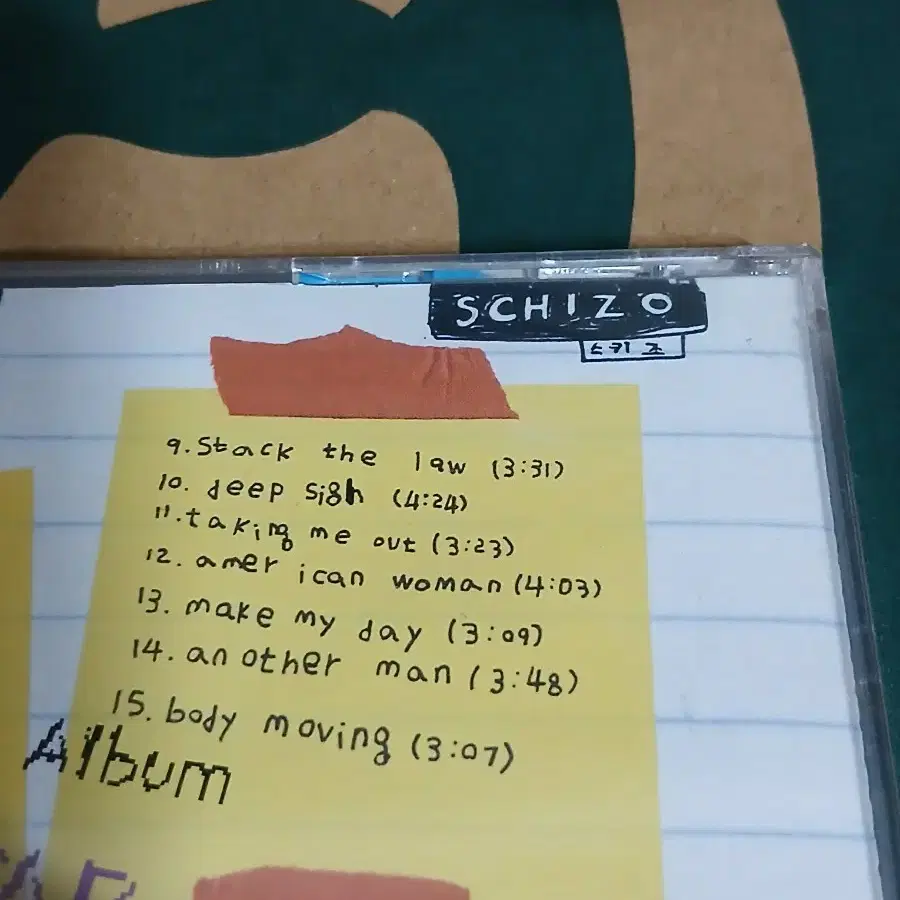 SCHIZO
스키조
9. Stack the law (3:31)
10. deep sigh (4:24)
11. taking me out (3:23)
12. amer ican woman (4:03)
13. make my day (3:09)
14. an other man (3:48)
15. body moving (3:07)
Album